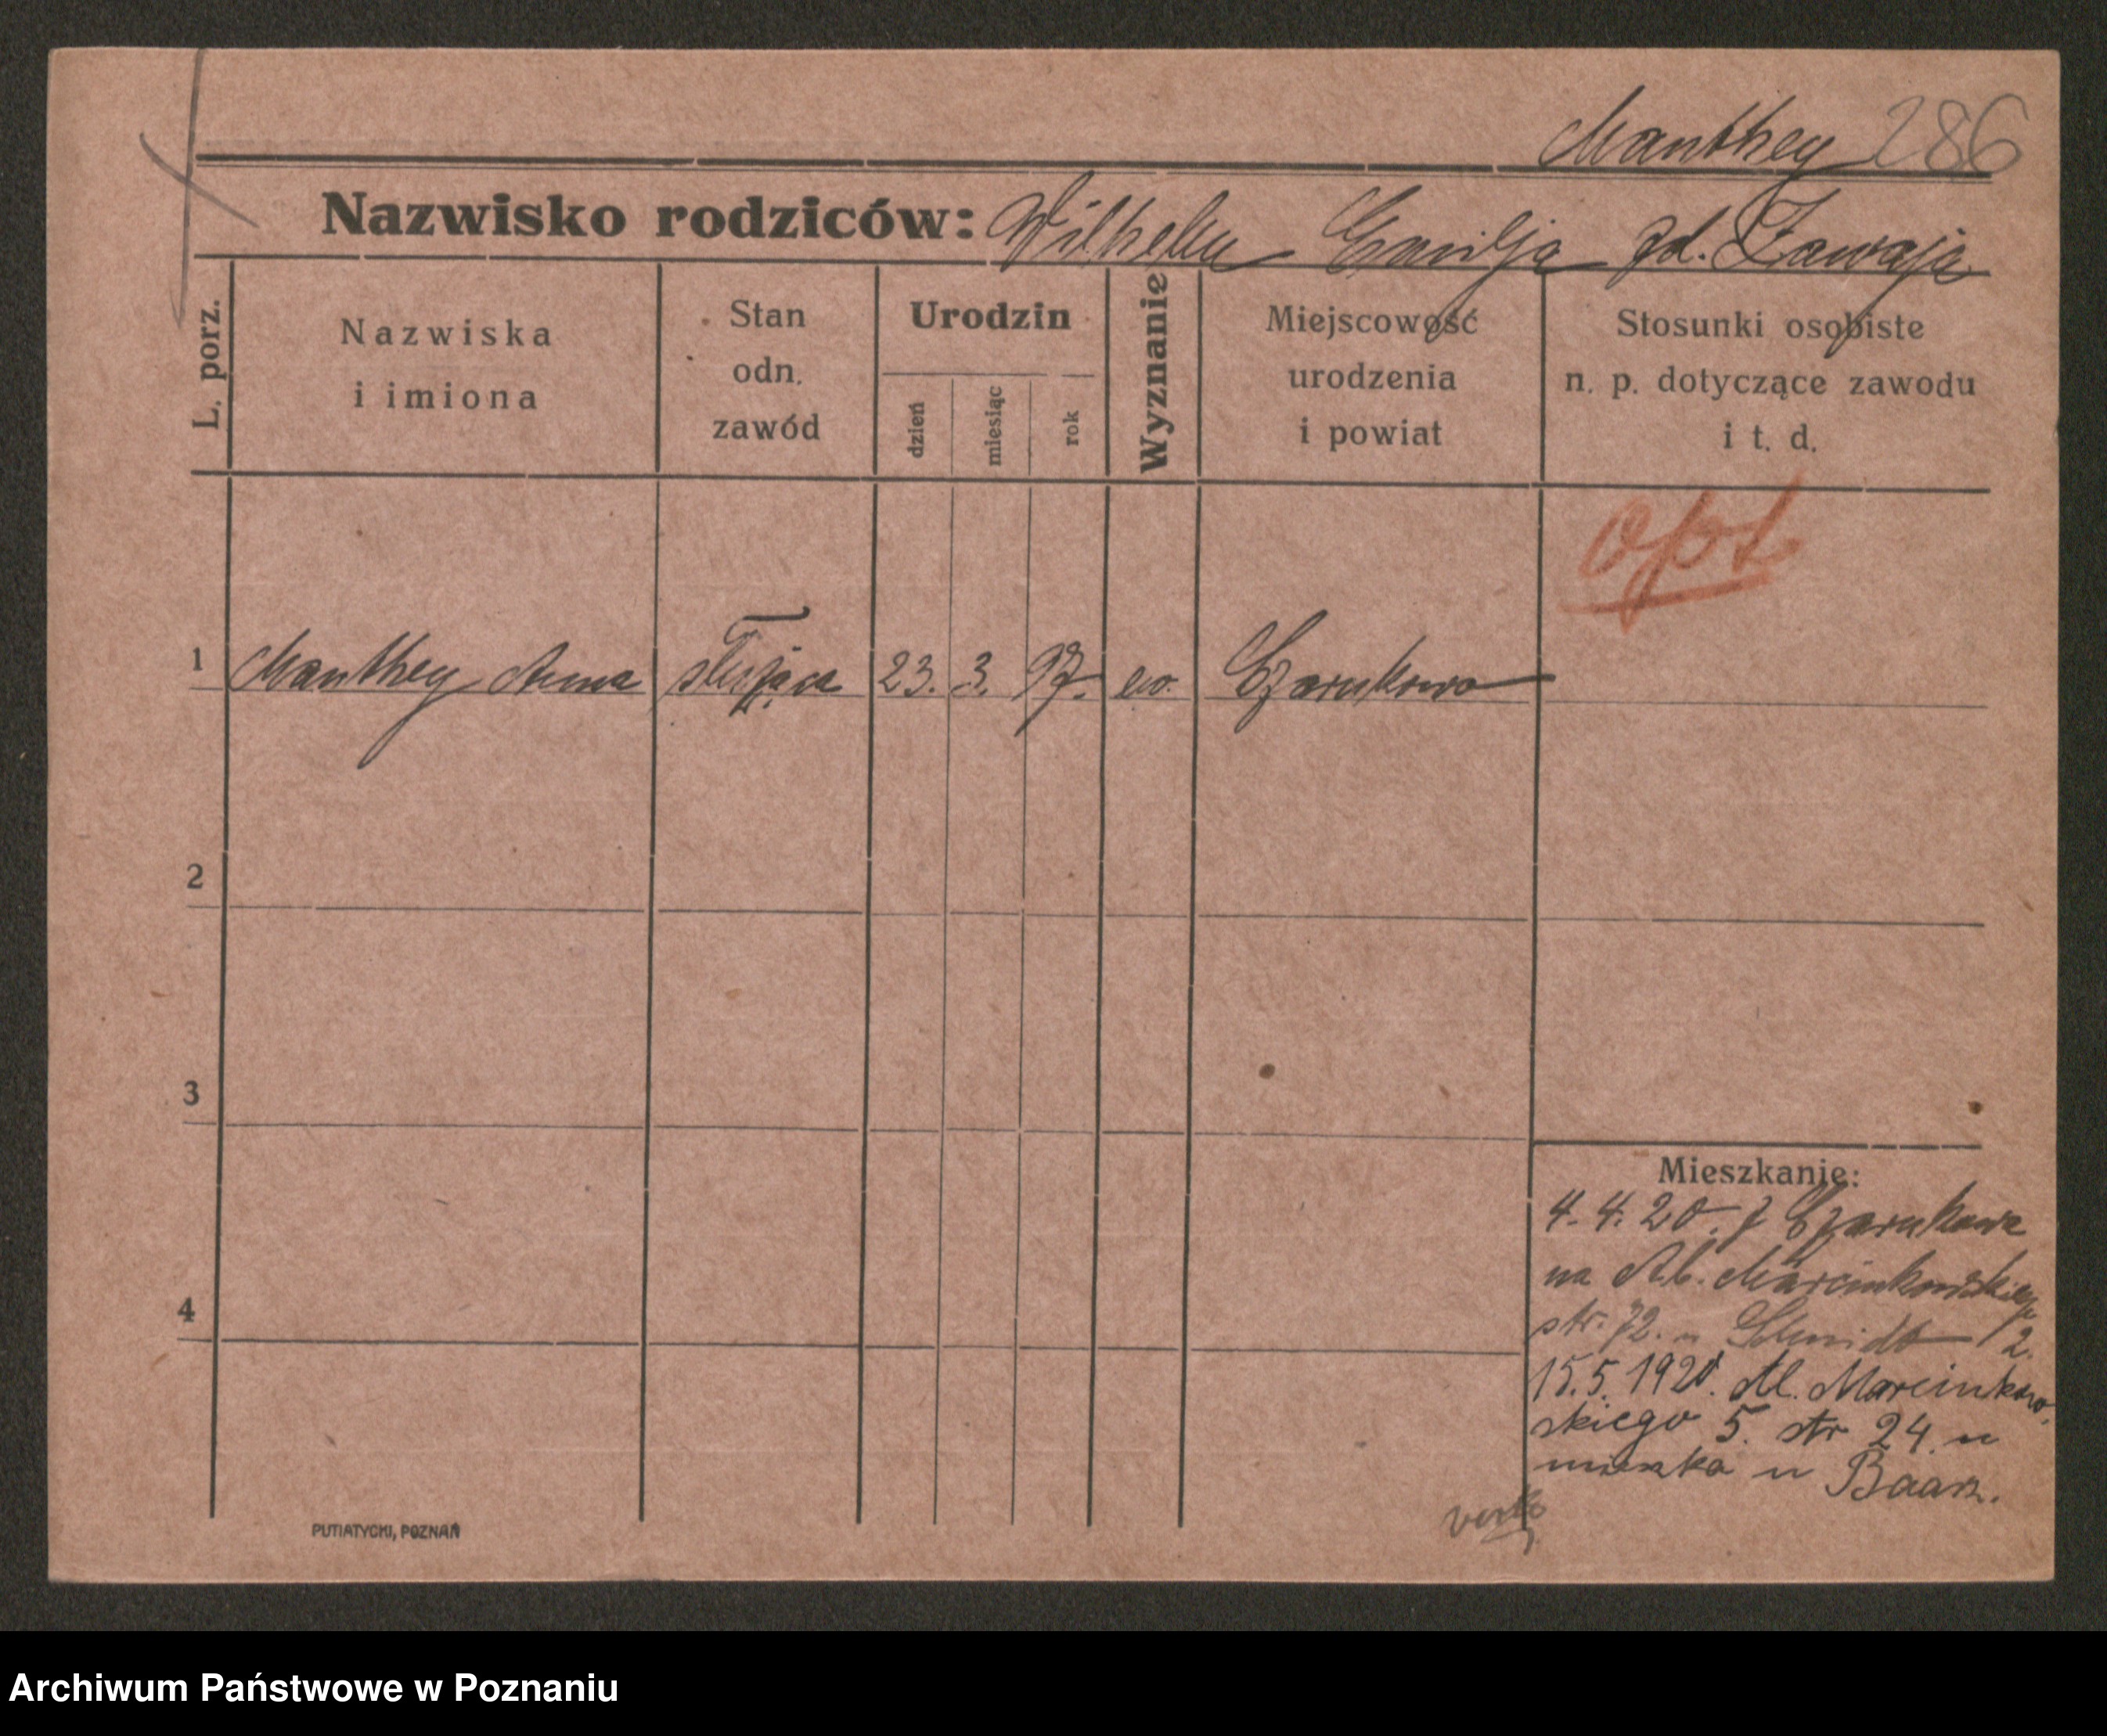 Manthey 286
Nazwisko rodziców: Wilhelm Emilja zd. Zawaja
L. porz.
Nazwiska
i imiona
Stan
odn.
zawód
Urodzin
dzień
miesiąc
rok
Wyznanie
Miejscowość
urodzenia
i powiat
Stosunki osobiste
n. p. dotyczące zawodu
i t. d.
opt
1 Manthey Anna służąca 23. 3. 97. ew. Czarnkowo
2
3
4
Mieszkanie:
4. 4. 20. z Czarnkowa
na Al. Marcinkowskiego
str. 72. u Schmidt
15.5. 1920. Al. Marcinkow
skiego 5. str 24. u
mieszka u Baarz.
PUTIATYCKI, POZNAŃ
Archiwum Państwowe w Poznaniu